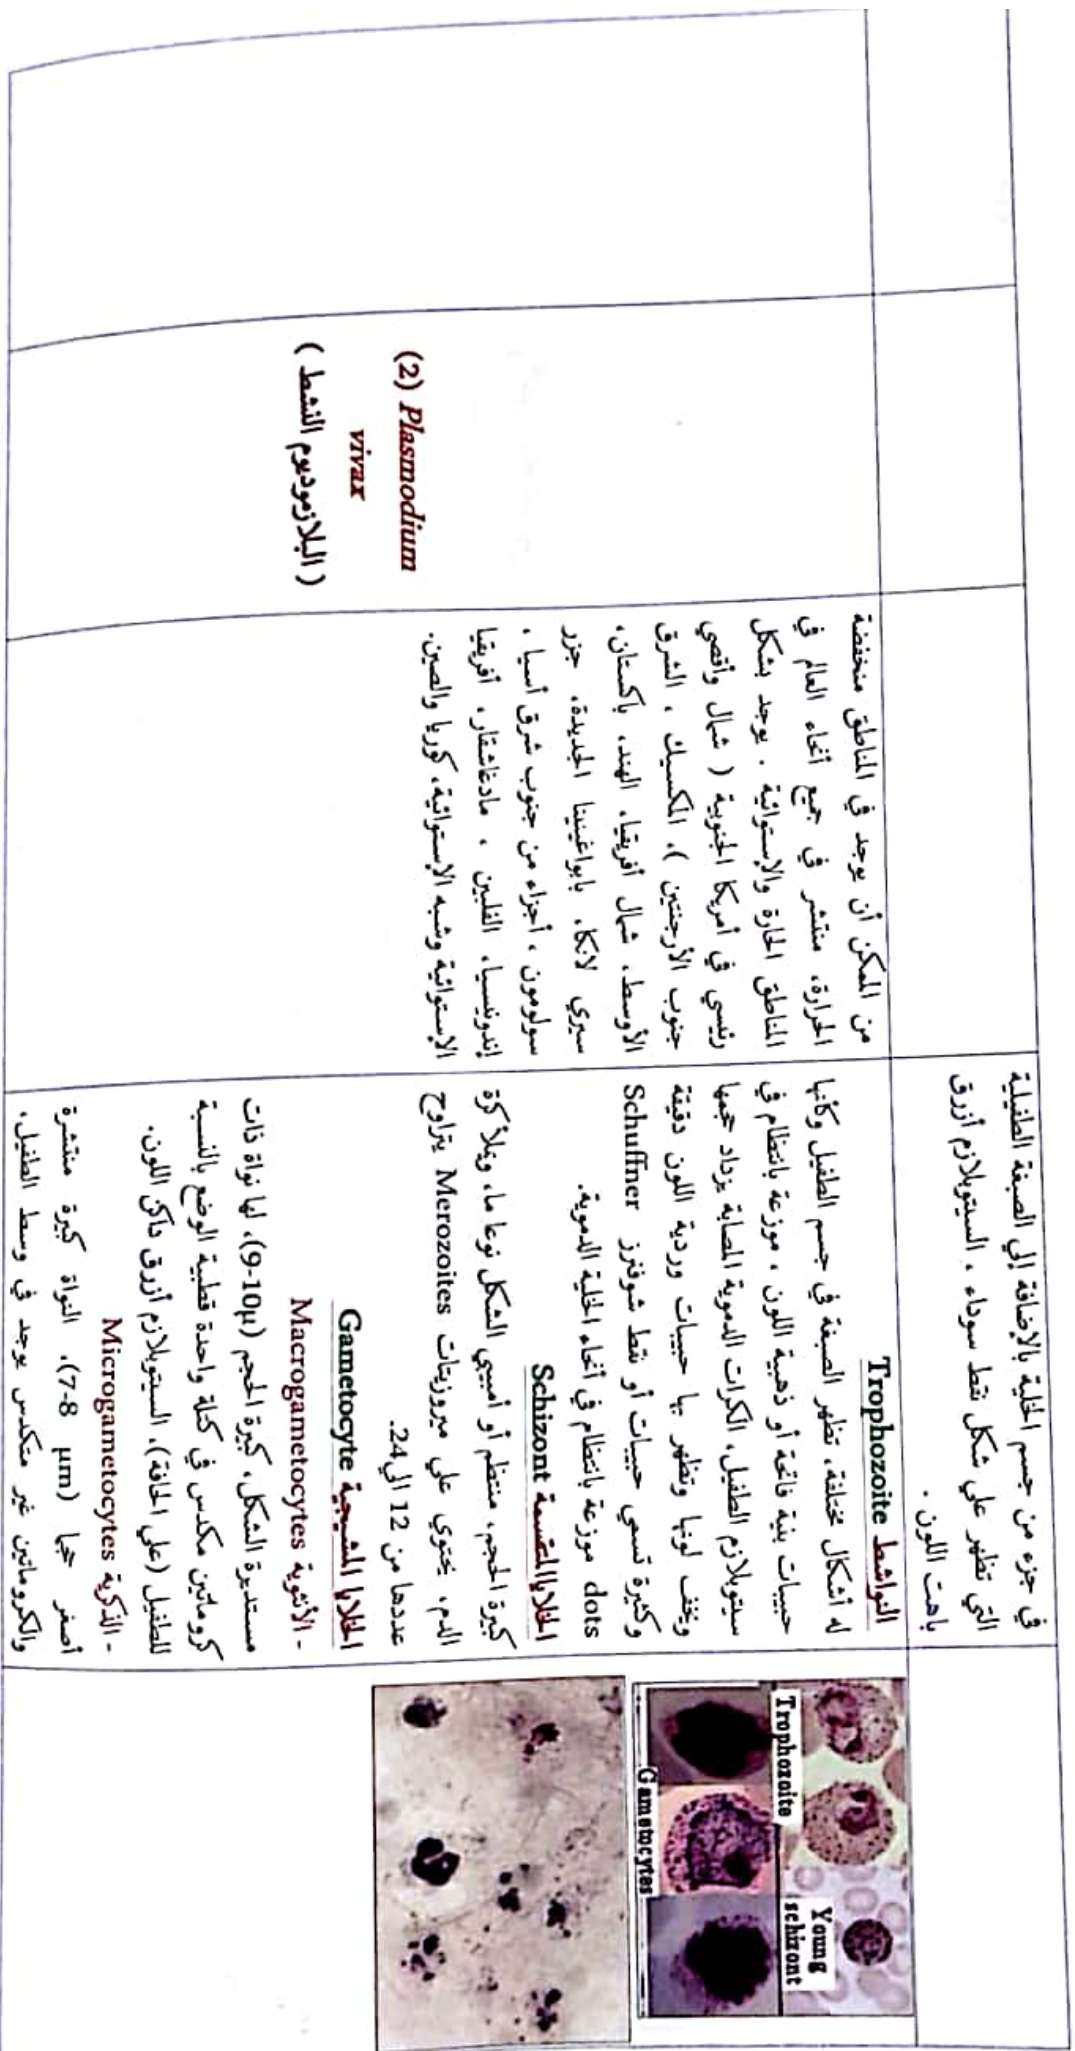 في جزء من جسم الخلية بالإضافة إلي الصبغة الطفيلية
التي تظهر علي شكل نقط سوداء ، السيتوبلازم أزرق
باهت اللون .
(2) Plasmodium
vivax
( البلازموديوم النشط )
من الممكن أن يوجد في المناطق منخفضة
الحرارة، منتشر في جميع أنحاء العالم في
المناطق الحارة والإستوائية . يوجد بشكل
رئيسي في أمريكا الجنوبية ( شمال وأقصي
جنوب الأرجنتين )، المكسيك ، الشرق
الأوسط، شمال أفريقيا، الهند، باكستان،
سيري لانكا، بابواغينيا الجديدة، جزر
سولومون ، أجزاء من جنوب شرق أسيا ،
إندونيسيا، الفلبين ، مادغاشقار، أفريقيا
الإستوائية وشبه الإستوائية، كوريا والصين.
النواشط Trophozoite
له أشكال مختلفة، تظهر الصبغة في جسم الطفيل وكأنها
حبيبات بنية فاتحة أو ذهبية اللون ، موزعة بانتظام في
سيتوبلازم الطفيل، الكرات الدموية المصابة يزداد حجمها
ويخف لونها وتظهر بها حبيبات وردية اللون دقيقة
وكثيرة تسمي حبيبات أو نقط شوفنرز Schuffner
dots موزعة بانتظام في أنحاء الخلية الدموية.
الخلايا المنقسمة Schizont
كبيرة الحجم، منتظم أو أميبي الشكل نوعا ما، ويملأ كرة
الدم، يحتوي علي ميروزيتات Merozoites يتراوح
عددها من 12 الي 24.
الخلايا المشيجية Gametocyte
- الأنثوية Macrogametocytes
مستديرة الشكل، كبيرة الحجم (9-10μ)، لها نواة ذات
كروماتين مكدس في كتلة واحدة قطبية الوضع بالنسبة
للطفيل (علي الحافة)، السيتوبلازم أزرق داكن اللون.
- الذكرية Microgametocytes
أصغر حجما (7-8 μm)، النواة كبيرة منتشرة
والكروماتين غير متكدس يوجد في وسط الطفيل،
Trophozoite
Young
schizont
Gametocytes